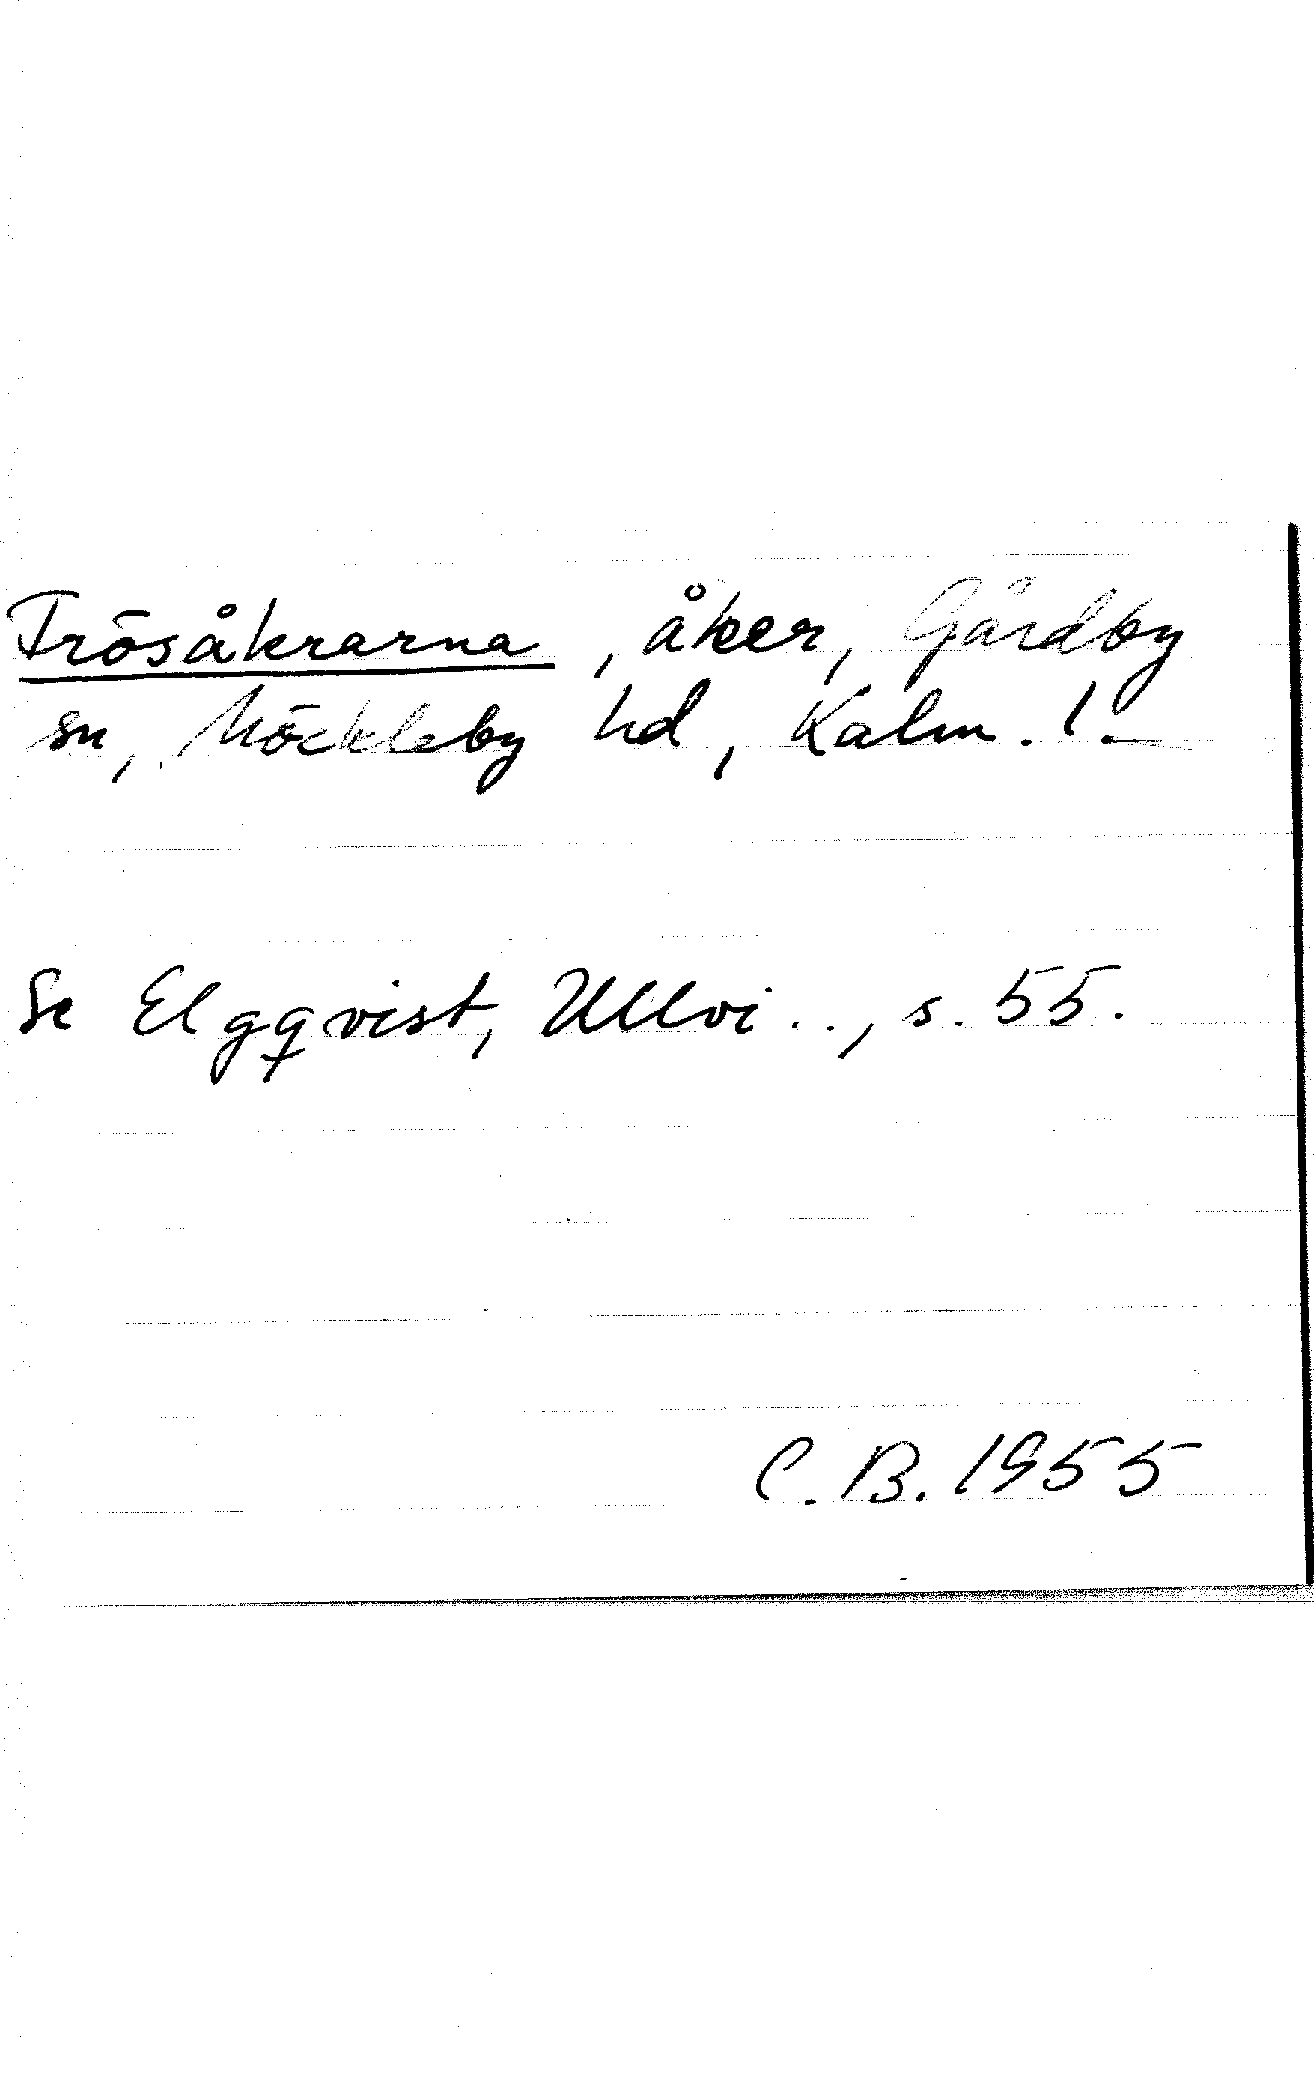 Frösåkrarna, åker, Gårdby
sn, Möckleby hd, Kalm. l.
Se Elgqvist, Ullvi.., s. 55.
C. B. 1955